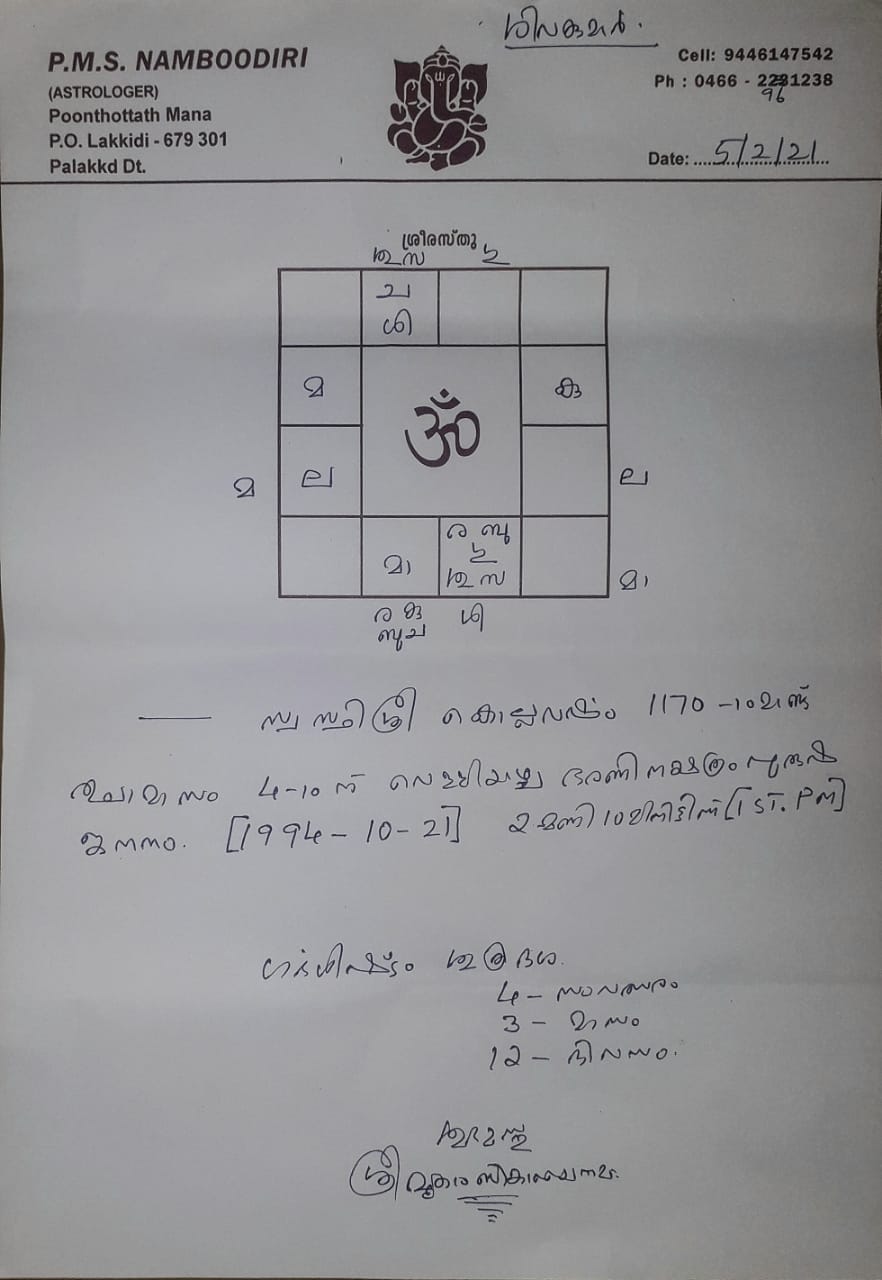 ശിവകുമാർ.
P.M.S. NAMBOODIRI
(ASTROLOGER)
Poonthottath Mana
P.O. Lakkidi - 679 301
Palakkd Dt.
Cell: 9446147542
Ph : 0466 - 2231238
96
Date: 5/2/21
ശ്രീരസ്തു
ച
ശി
മ
ॐ
കു
മ
ല
ല
ര ബു
മാ
മാ
ര കു
ബു ച
ശി
സ്വസ്തിശ്രീ കൊല്ലവർഷം 1170-
മാസം 4-ാം ന് വെള്ളിയാഴ്ച ഭരണി നക്ഷത്രം പുരുഷ
ജനനം. [1994-10-21] 2 മണി 10 മിനിട്ടിന് [IST. PM]
ഗർഭശിഷ്ടം ശുക്രദശ.
4 - സംവത്സരം
3 - മാസം
12 - ദിവസം.
ശുഭമസ്തു
ശ്രീ